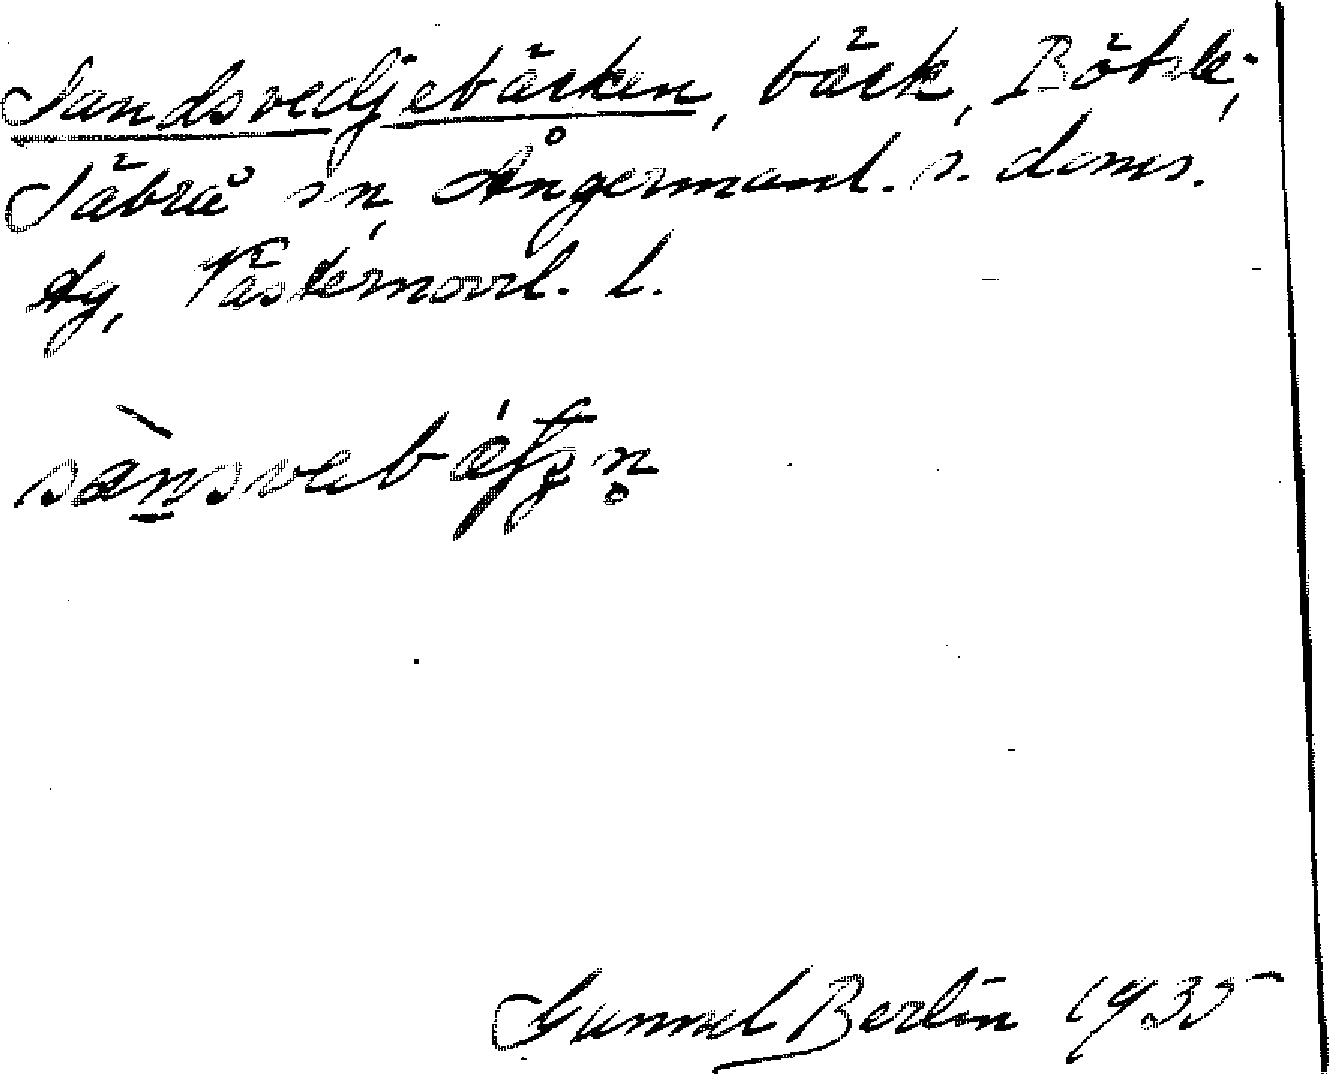 Sandsvedjebäcken, bäck, Böhle,
Säbrå sn, Ångermanl. s. doms.
dg, Västernorrl. l.
Gunnel Berlin 1935